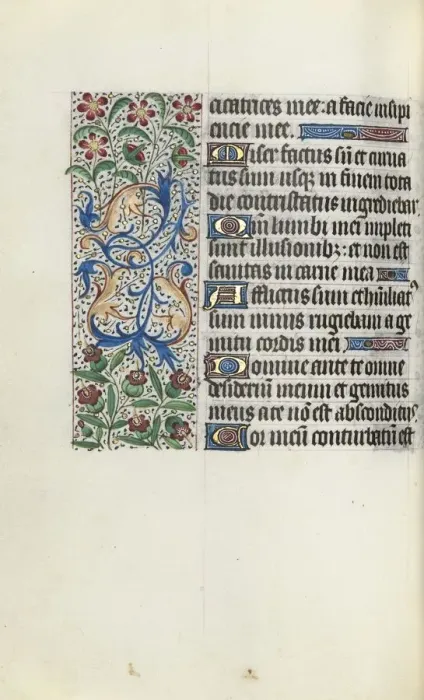 cicatrices mee: a facie insipi
encie mee.
Miser factus sũ et curua
tus sum usqʒ in finem tota
die contristatus ingrediebar.
Qm̃ lumbi mei impleti
sunt illusionibʒ: et non est
sanitas in carne mea
Afflictus sum et hũiliatꝰ
sum nimis rugiebam a ge
mitu cordis mei
Domine ante te omne
desiderium meum et gemitus
meus a te nõ est absconditꝰ.
Cor meũ conturbatũ est